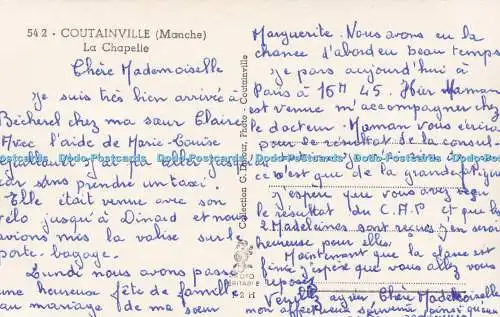 542 - COUTAINVILLE (Manche)
La Chapelle
Chère Mademoiselle
je suis très bien arrivée à
Bécherel chez ma sœur Claire
Avec l'aide de Marie-Louise
j'ai pu aller jusqu'
car sans prendre un taxi.
Elle était venue avec son
vélo jusqu'à Dinard et nous
avions mis la valise sur le
porte-bagage.
Lundi nous avons passé
une heureuse fête de famille
au mariage de ma sœur
Collection G. Dufour, Photo - Coutainville
Marguerite. Nous avons eu la
chance d'abord un beau temps
je pars aujourd'hui à
Paris à 16H 45. Hier Maman
est venue m'accompagner chez
le docteur. Maman vous écrira
pour le résultat de la consul-
ce n'est que de la grande fatigue
j'espère que vous avez reçu
le résultat du C.A.P et que les
2 Madeleines sont reçues j'en serais
heureuse pour elles.
Maintenant que la classe est
finie j'espère que vous allez vous
reposer.
Veuillez agréer Chère Mademoiselle
mon affectueux souvenir ainsi que
Dodo-Postcards Dodo-Postcards Dodo-Postcards Dodo-Postcards